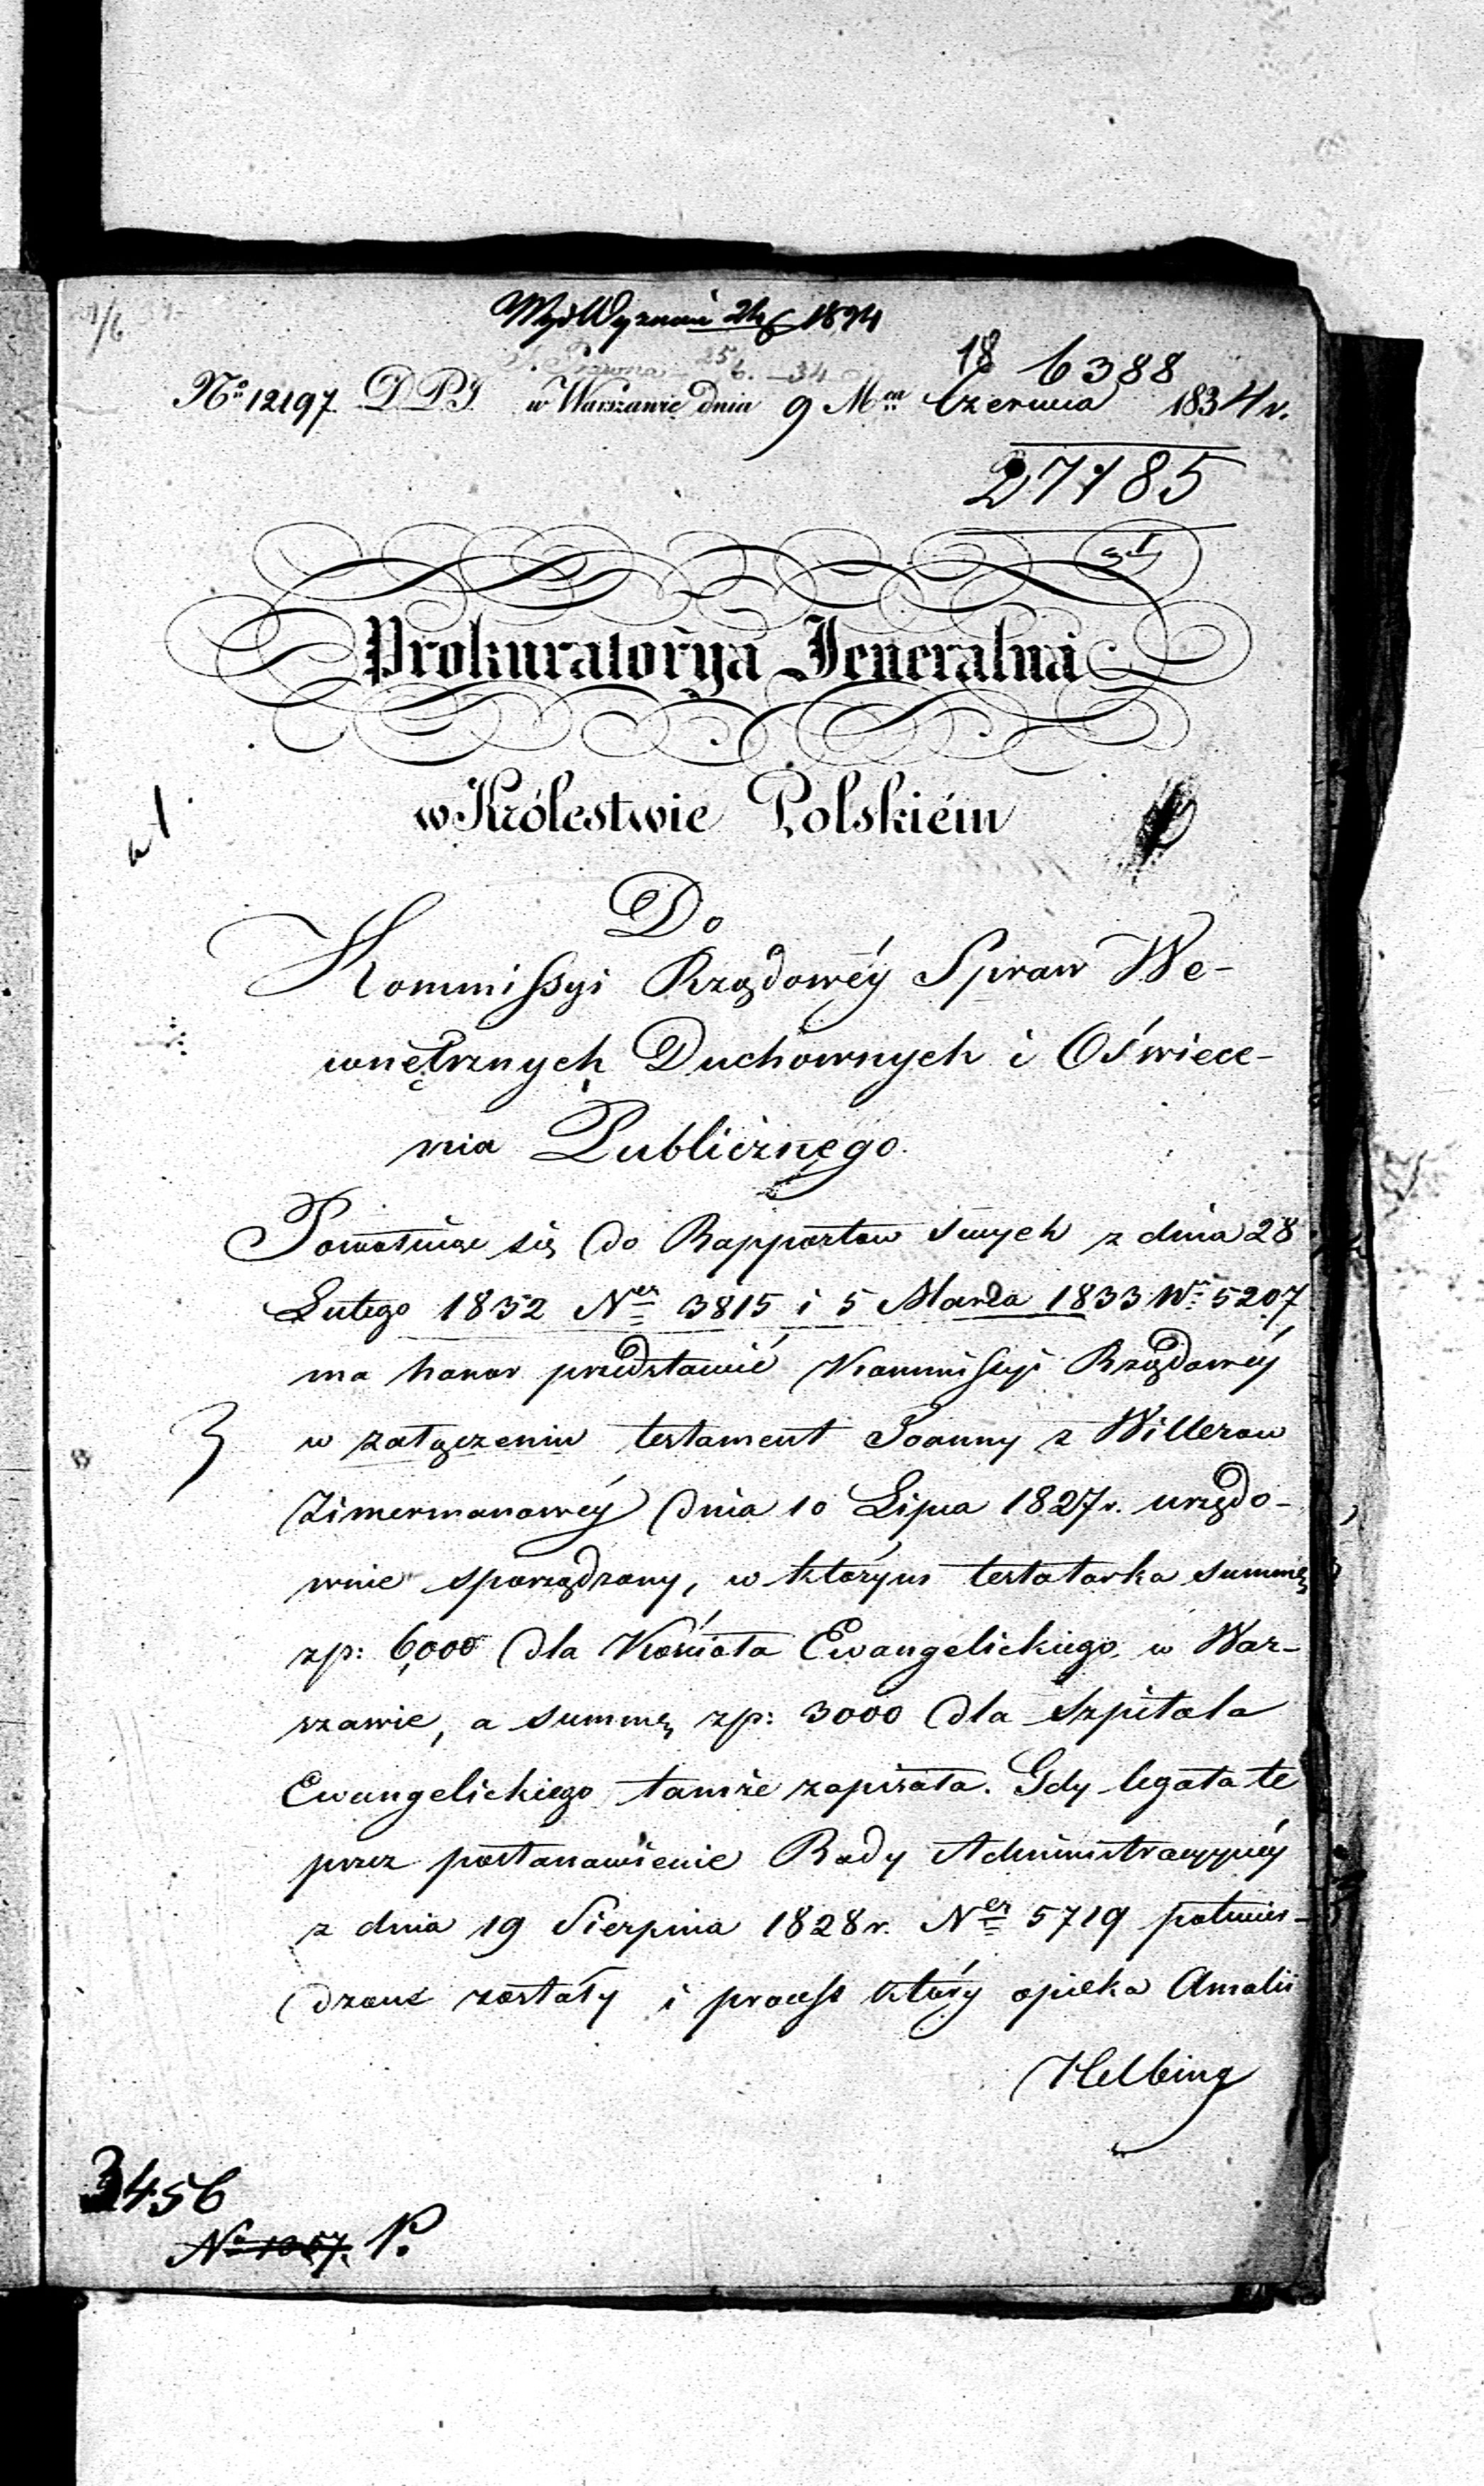 Wyd Wyznań 24/6 1834
18 6388
No 12197. D.P.J. w Warszawie dnia 9 Mca Czerwca 1834 r.
27185
Prokuratorya Jeneralna
w Królestwie Polskiém
Do
Kommissyi Rządowéy Spraw We-
wnętrznych Duchownych i Oświece-
nia Publicznego.
Powołuiąc się do Rapportow swych z dnia 28
Lutego 1832 Ner 3815 i 5 Marca 1833 Nr 5207
ma honor przedstawić Kommissyi Rządowéy
3 w załączeniu testament Joanny z Willerow
Zimermanowéy dnia 10 Lipca 1827 r. urzędo-
wnie sporządzony, w którym testatorka summę
zp: 6,000 dla Kościoła Ewangelickiego w War-
szawie, a summę zp: 3000 dla szpitala
Ewangelickiego tamże zapisała. Gdy legata te
przez postanowienie Rady Administracyynéy
z dnia 19 Sierpnia 1828 r. Ner 5719 potwier-
dzone zostały i process który opieka Amalii
Helbing
3456
No 1057. P.